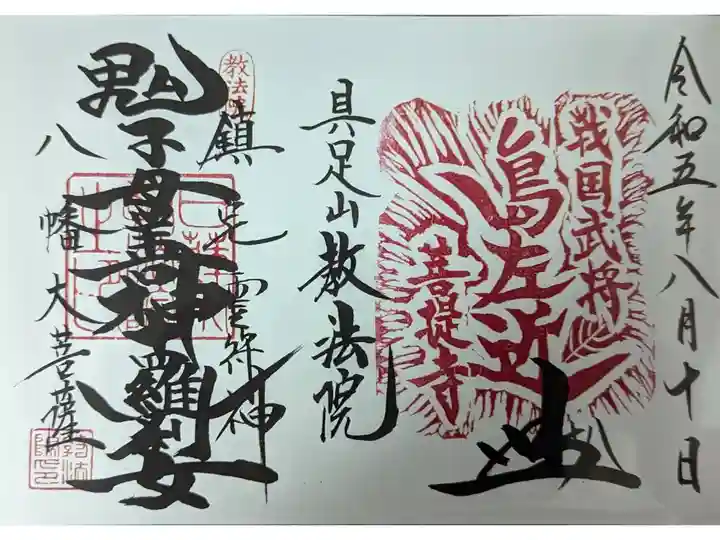 令和五年八月十日
戦国武将
島左近
菩提寺
具足山教法院
鎮宅霊符神
鬼子母尊神羅刹女
八幡大菩薩